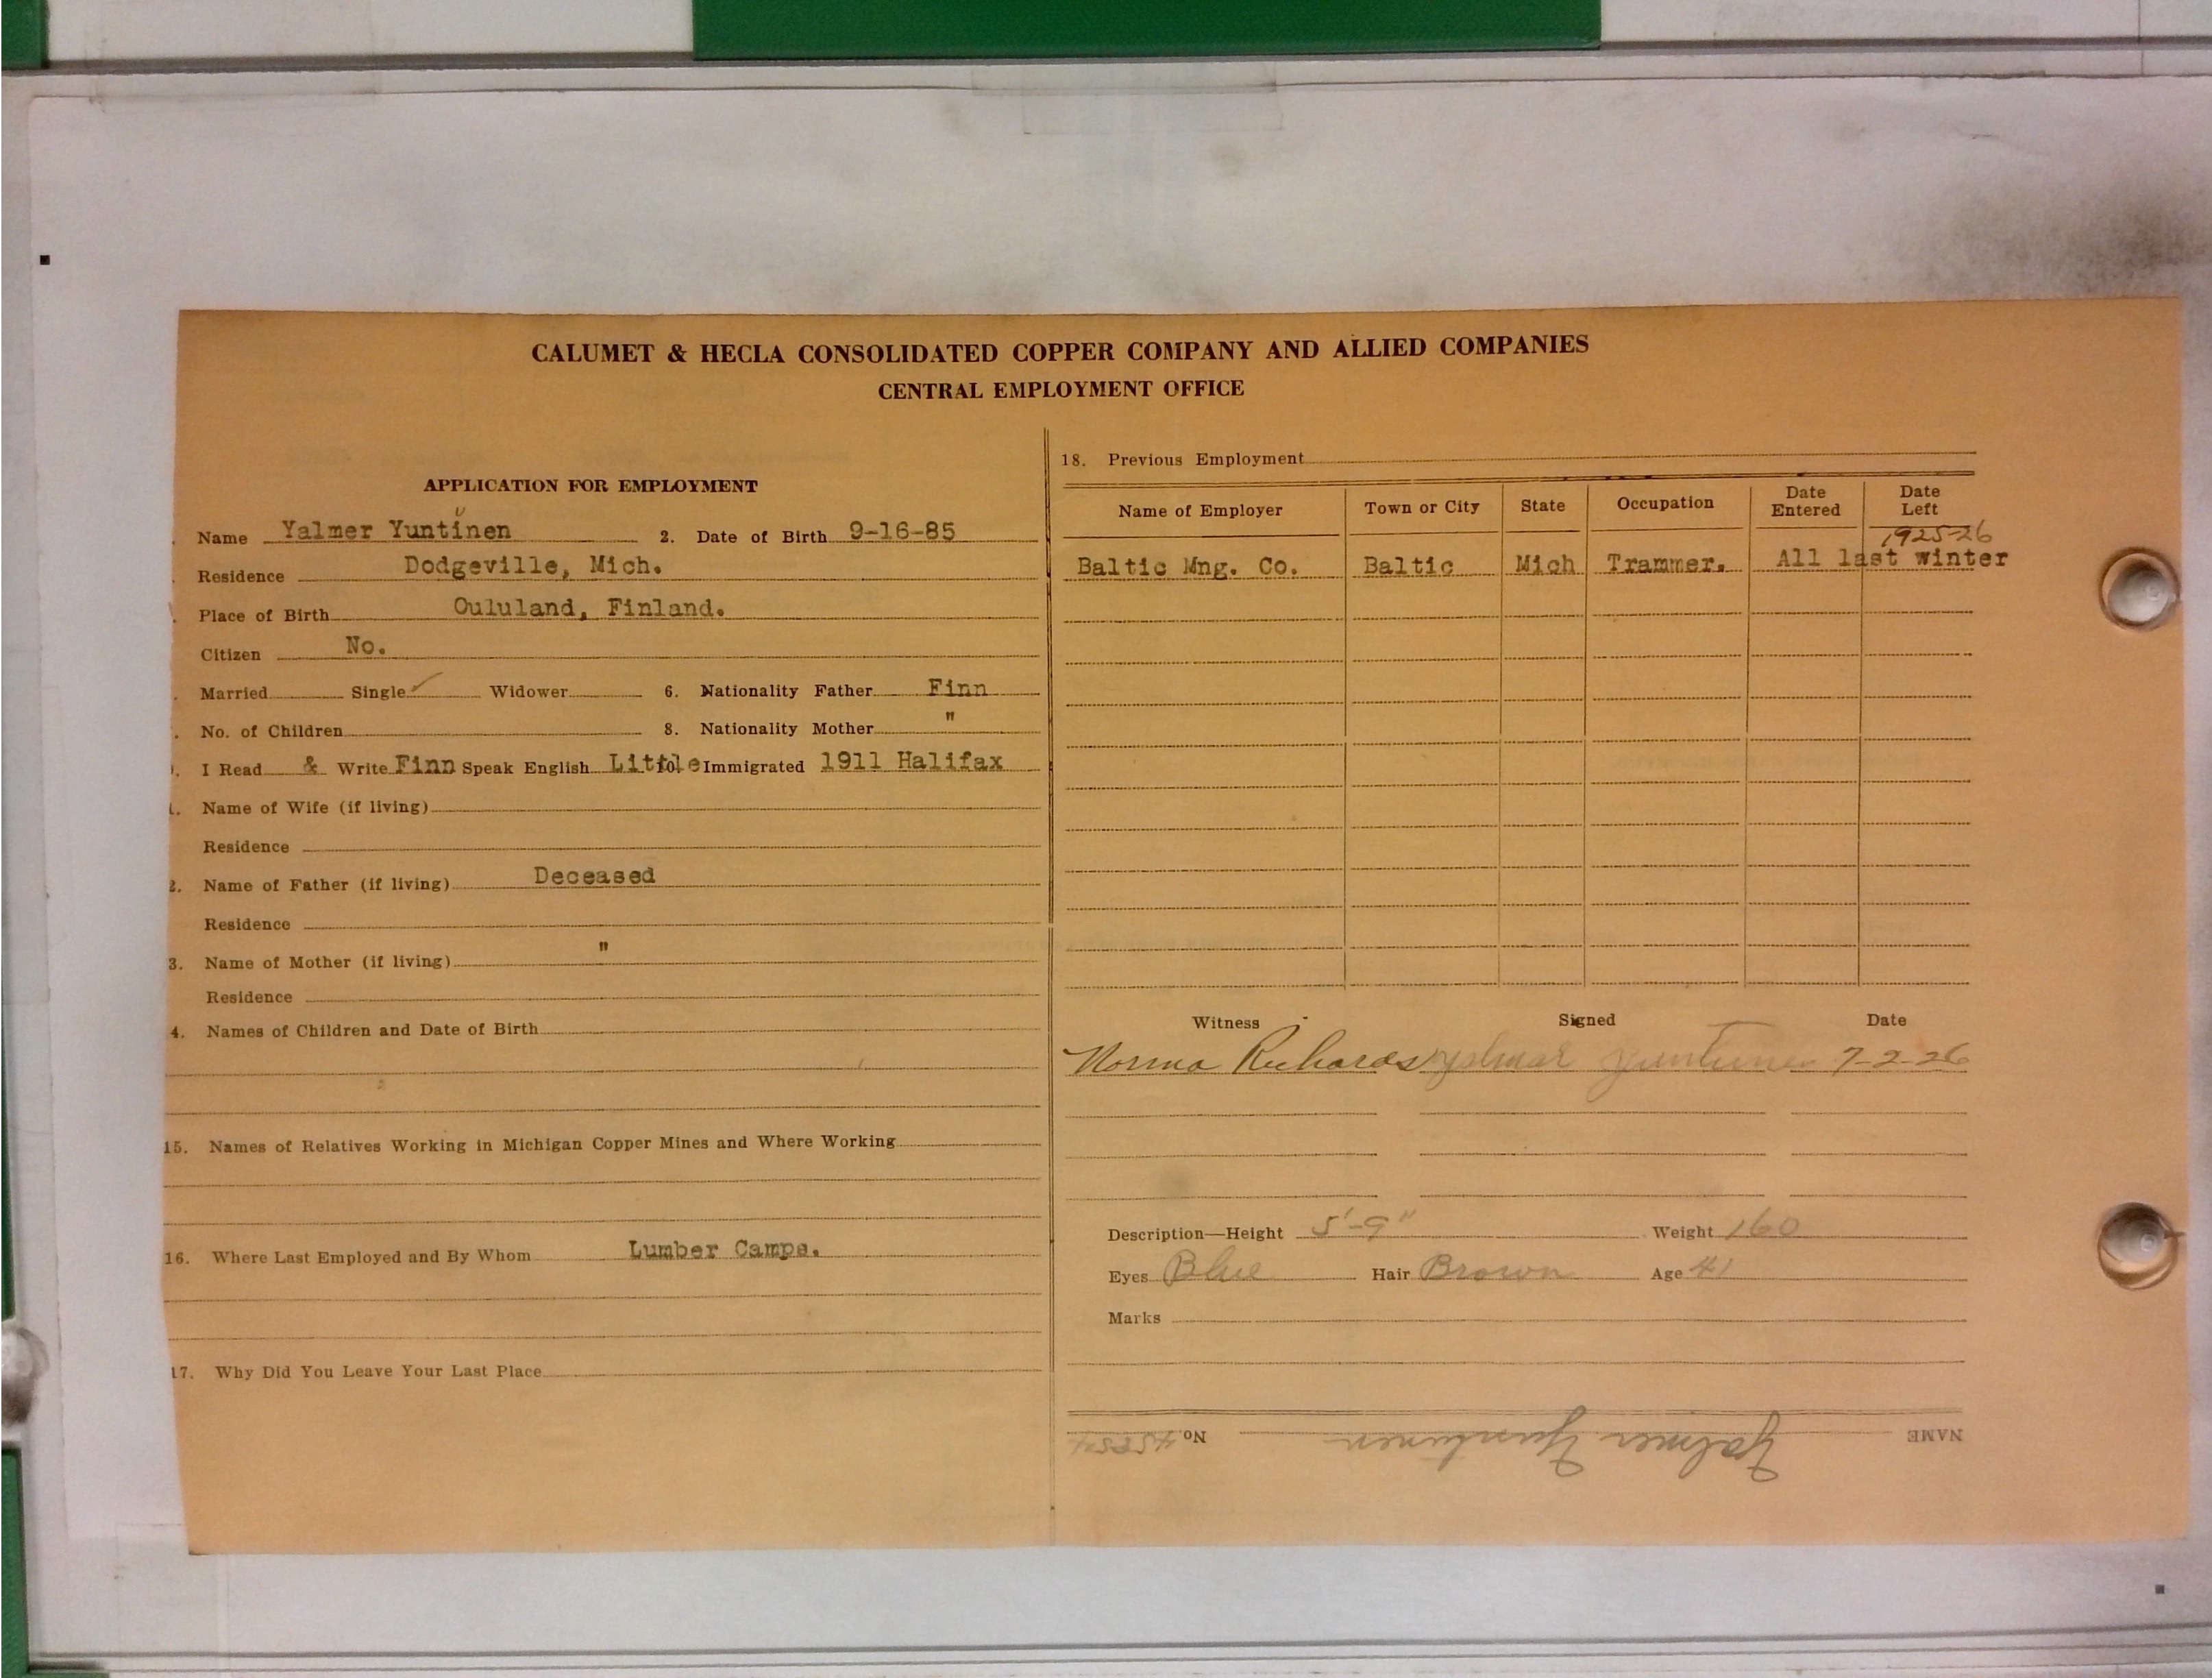 CALUMET & HECLA CONSOLIDATED COPPER COMPANY AND ALLIED COMPANIES
CENTRAL EMPLOYMENT OFFICE
APPLICATION FOR EMPLOYMENT
u
Name Yalmer Yuntinen 2. Date of Birth 9-16-85
Residence Dodgeville, Mich.
Place of Birth Oululand, Finland.
Citizen No.
Married Single ✓ Widower 6. Nationality Father Finn
No. of Children 8. Nationality Mother "
I Read & Write Finn Speak English Little 10. Immigrated 1911 Halifax
Name of Wife (if living)
Residence
2. Name of Father (if living) Deceased
Residence
3. Name of Mother (if living) "
Residence
4. Names of Children and Date of Birth
15. Names of Relatives Working in Michigan Copper Mines and Where Working
16. Where Last Employed and By Whom Lumber Camps.
17. Why Did You Leave Your Last Place
18. Previous Employment
Name of Employer Town or City State Occupation Date Entered Date Left
1925-26
Baltic Mng. Co. Baltic Mich Trammer. All last winter
Witness Signed Date
Norma Richards Yalmar Yuntunen 7-2-26
Description—Height 5'-9" Weight 160
Eyes Blue Hair Brown Age 41
Marks
NAME Yalmer Yuntunen No.